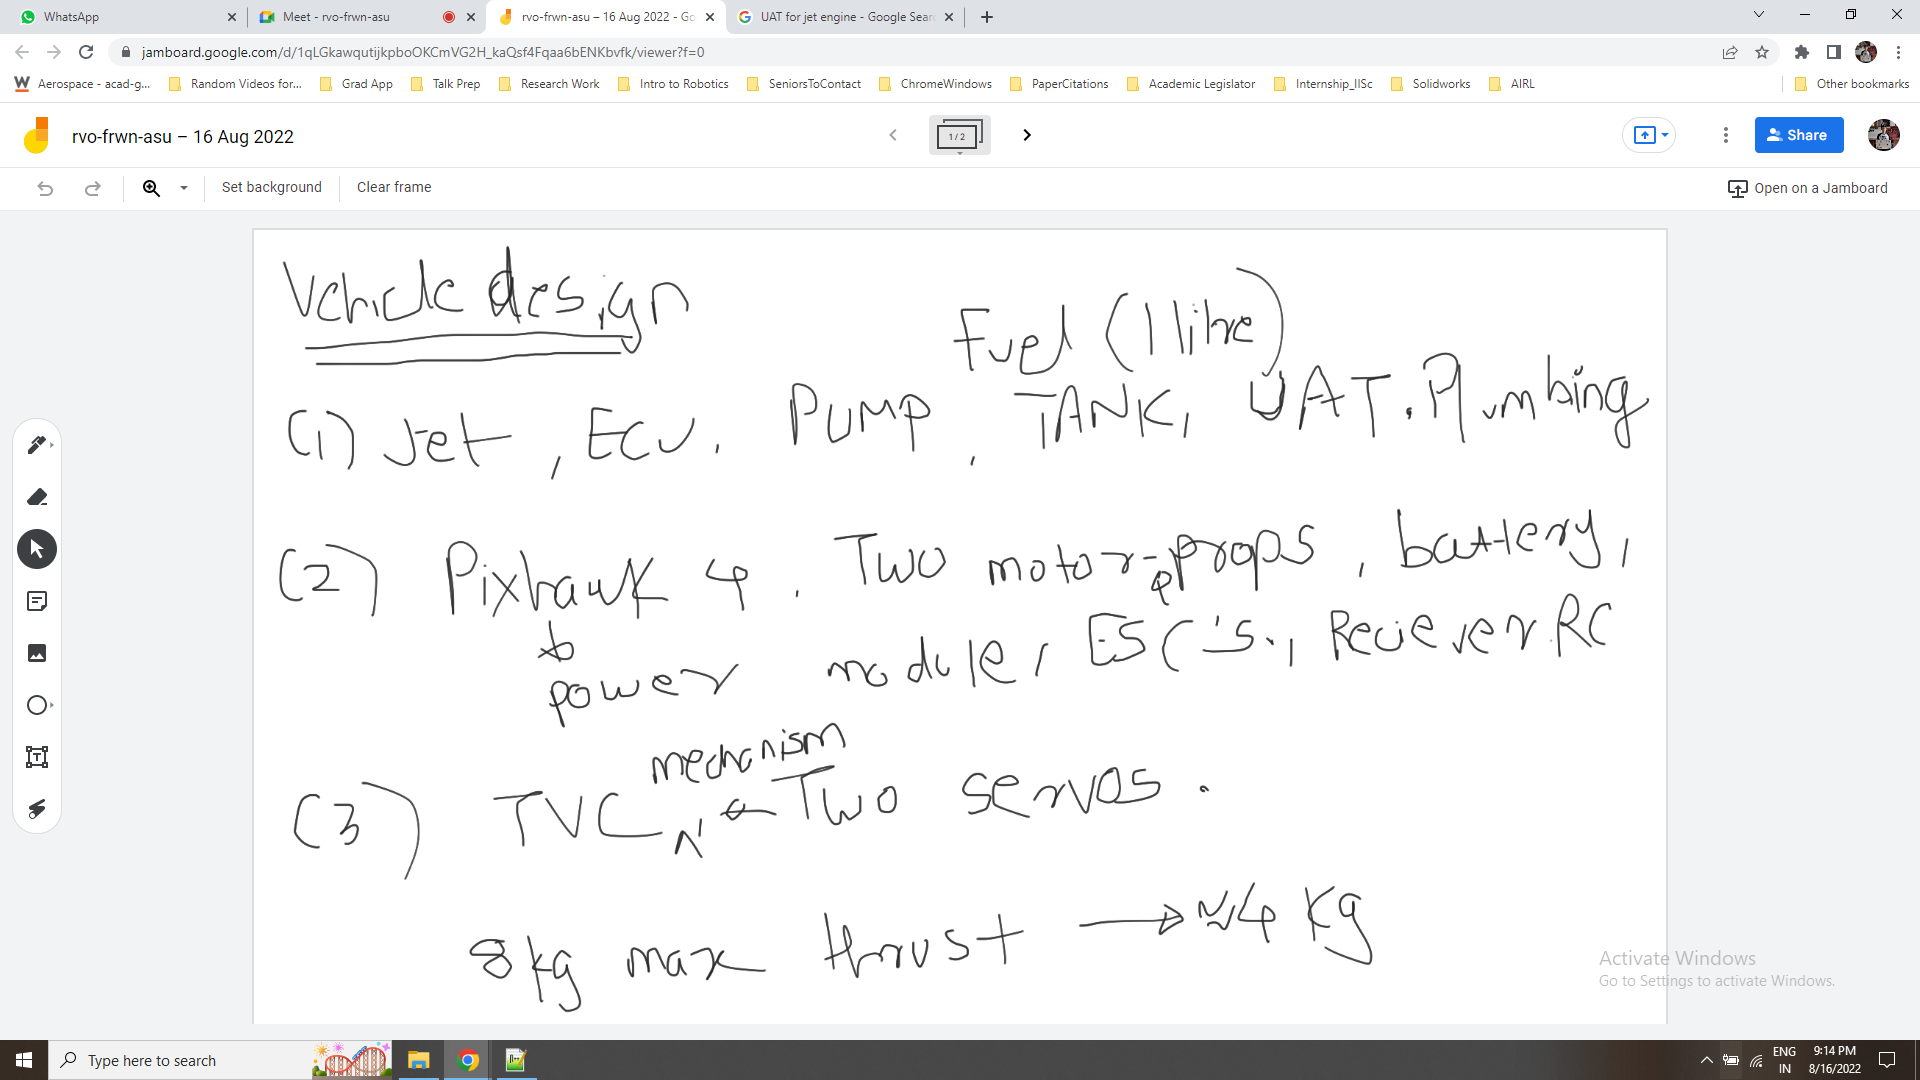 WhatsApp
Meet - rvo-frwn-asu
rvo-frwn-asu – 16 Aug 2022 - Go
UAT for jet engine - Google Sear
jamboard.google.com/d/1qLGkawqutijkpboOKCmVG2H_kaQsf4Fqaa6bENKbvfk/viewer?f=0
Aerospace - acad-g... Random Videos for... Grad App Talk Prep Research Work Intro to Robotics SeniorsToContact ChromeWindows PaperCitations Academic Legislator Internship_IISc Solidworks AIRL Other bookmarks
rvo-frwn-asu – 16 Aug 2022
1 / 2
Share
Set background Clear frame
Open on a Jamboard
Vehicle design
Fuel (1 litre)
(1) Jet, ECU, PUMP, TANK, UAT. Plumbing
(2) Pixhawk 4, Two motor-props, battery,
power module, ESC's., Reciever RC
mechanism
(3) TVC ← Two servos.
8 kg max thrust → ≈ 4 kg
Activate Windows
Go to Settings to activate Windows.
Type here to search
ENG
IN
9:14 PM
8/16/2022